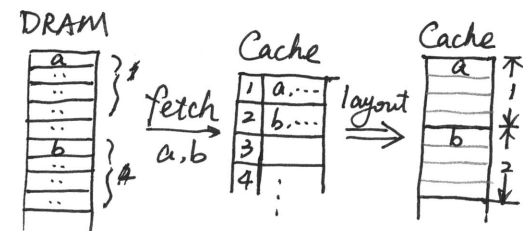 DRAM
a
..
..
..
..
b
..
..
..
fetch
a,b
Cache
1 a,....
2 b,....
3
4
layout
Cache
a
1
b
2